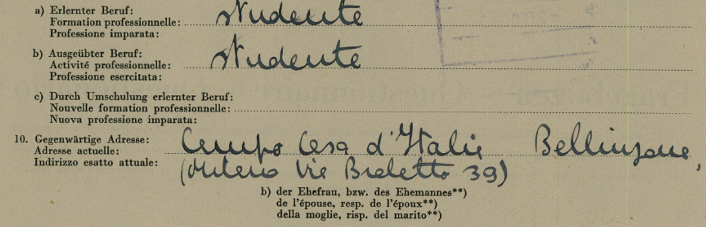 a) Erlernter Beruf:
Formation professionnelle: studente
Professione imparata:
b) Ausgeübter Beruf:
Activité professionnelle: studente
Professione esercitata:
c) Durch Umschulung erlernter Beruf:
Nouvelle formation professionnelle:
Nuova professione imparata:
10. Gegenwärtige Adresse:
Adresse actuelle: Campo Casa d'Italia Bellinzona,
Indirizzo esatto attuale: (Milano Via Broletto 39)
b) der Ehefrau, bzw. des Ehemannes**)
de l'épouse, resp. de l'époux**)
della moglie, risp. del marito**)